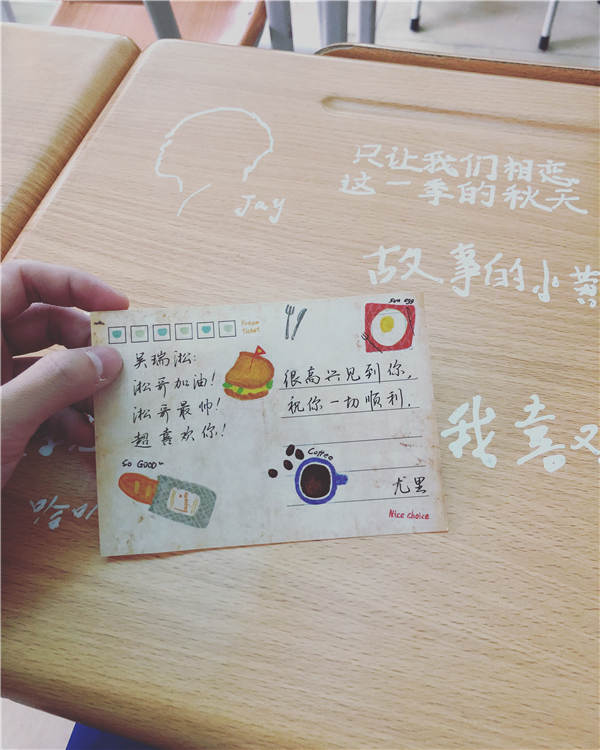 只让我们相恋
这一季的秋天
Jay
故事的小黄
我喜欢
From
Ticket
Sun egg
吴瑞淞:
淞哥加油!
淞哥最帅!
超喜欢你!
很高兴见到你,
祝你一切顺利.
SO GOOD~
Coffee
尤里
Nice choice